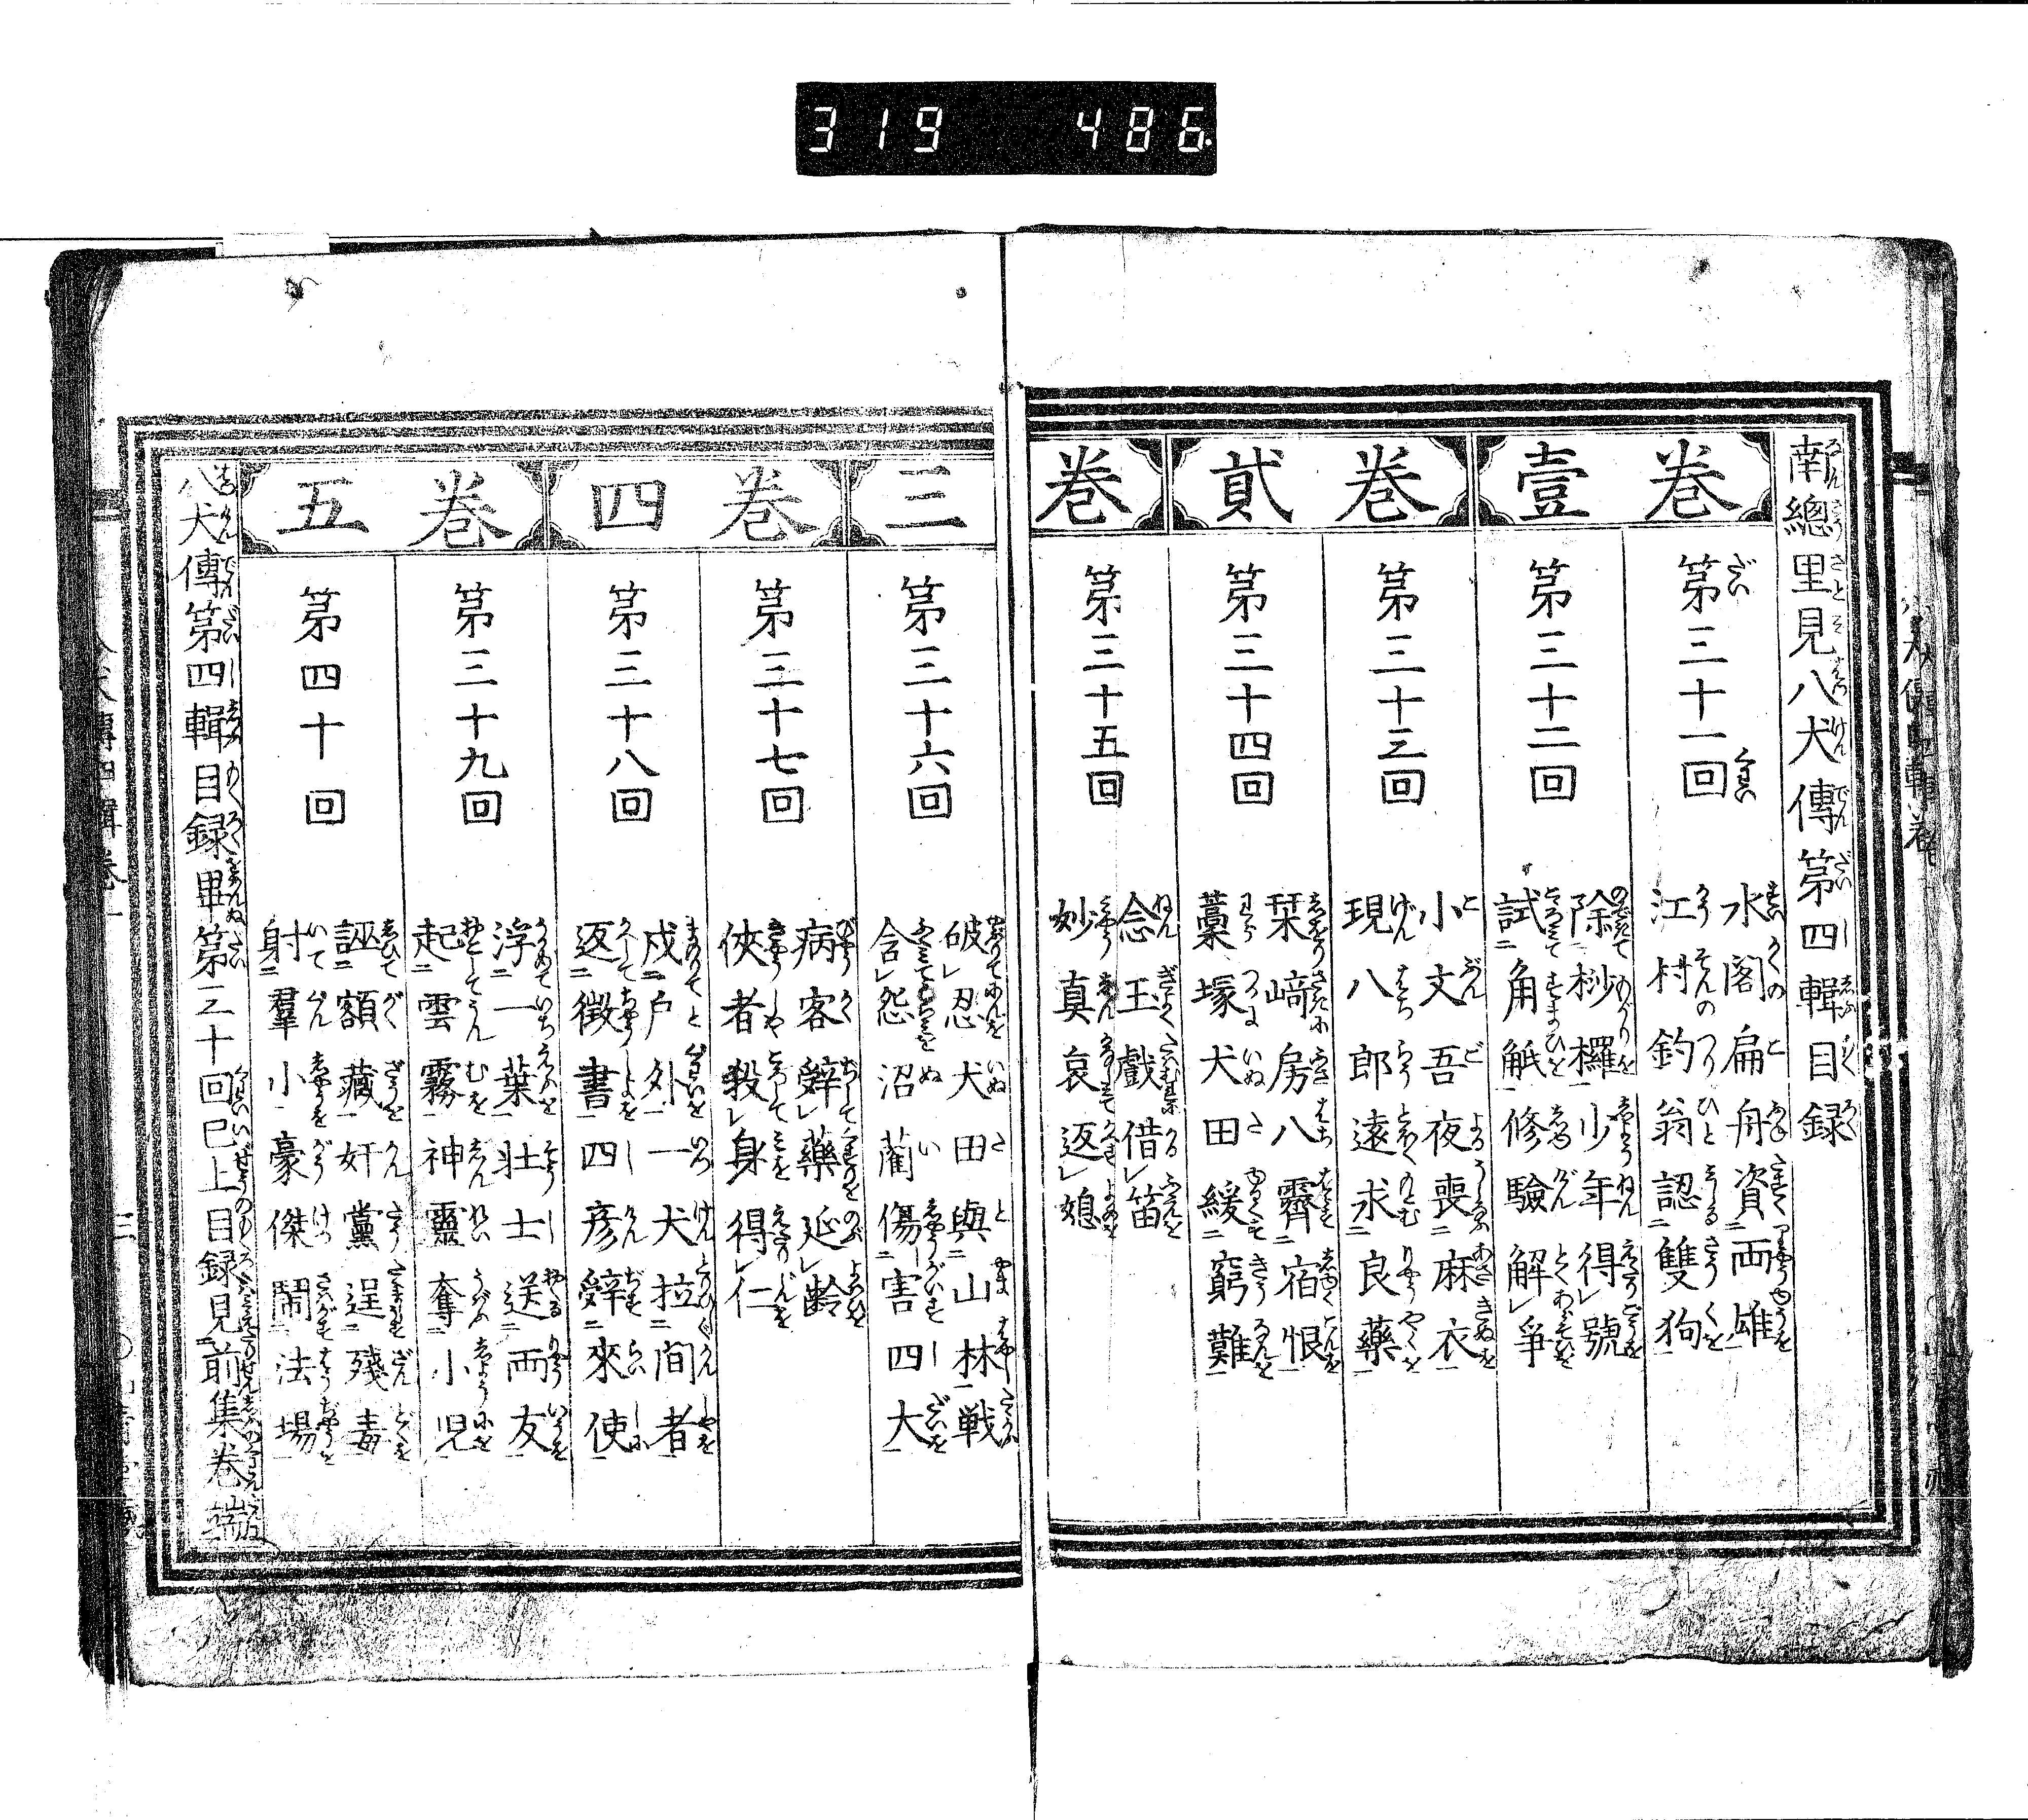 319 486
南總里見八犬傳第四輯目録
巻壹
第三十一回
水閣扁舟資両雄
江村釣翁認雙狗
第三十二回
除桫欏少年得號
試角觝修驗解爭
巻貳
第三十三回
小文吾夜喪麻衣
現八郎遠求良藥
第三十四回
栞﨑房八霽宿恨
藁塚犬田緩窮難
巻三
第三十五回
念玉戲借笛
妙真哀返媳
第三十六回
破忍犬田與山林戦
含怨沼藺傷害四大
巻四
第三十七回
病客辭藥延齡
俠者殺身得仁
第三十八回
戍戸外一犬拉間者
返徴書四彦辭來使
巻五
第三十九回
浮一葉壮士送両友
起雲霧神靈奪小児
第四十回
誣額藏奸黨逞殘毒
射羣小豪傑閙法場
八犬傳第四輯目録畢第三十回已上目録見前集巻端